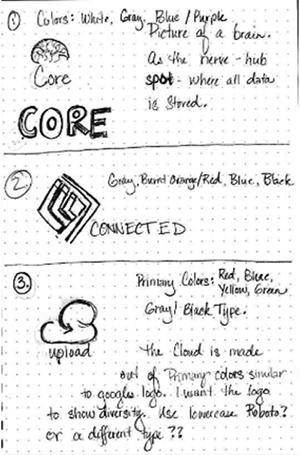 1 Colors: White, Gray, Blue/Purple
Picture of a brain.
As the nerve-hub
spot - where all data
is stored.
Core
CORE
2 Gray, Burnt Orange/Red, Blue, Black
CONNECTED
3. Primary Colors: Red, Blue,
Yellow, Green
Gray/Black Type.
upload
the Cloud is made
out of Primary colors similar
to googles logo. I want the logo
to show diversity. Use lowercase Roboto?
or a different type??